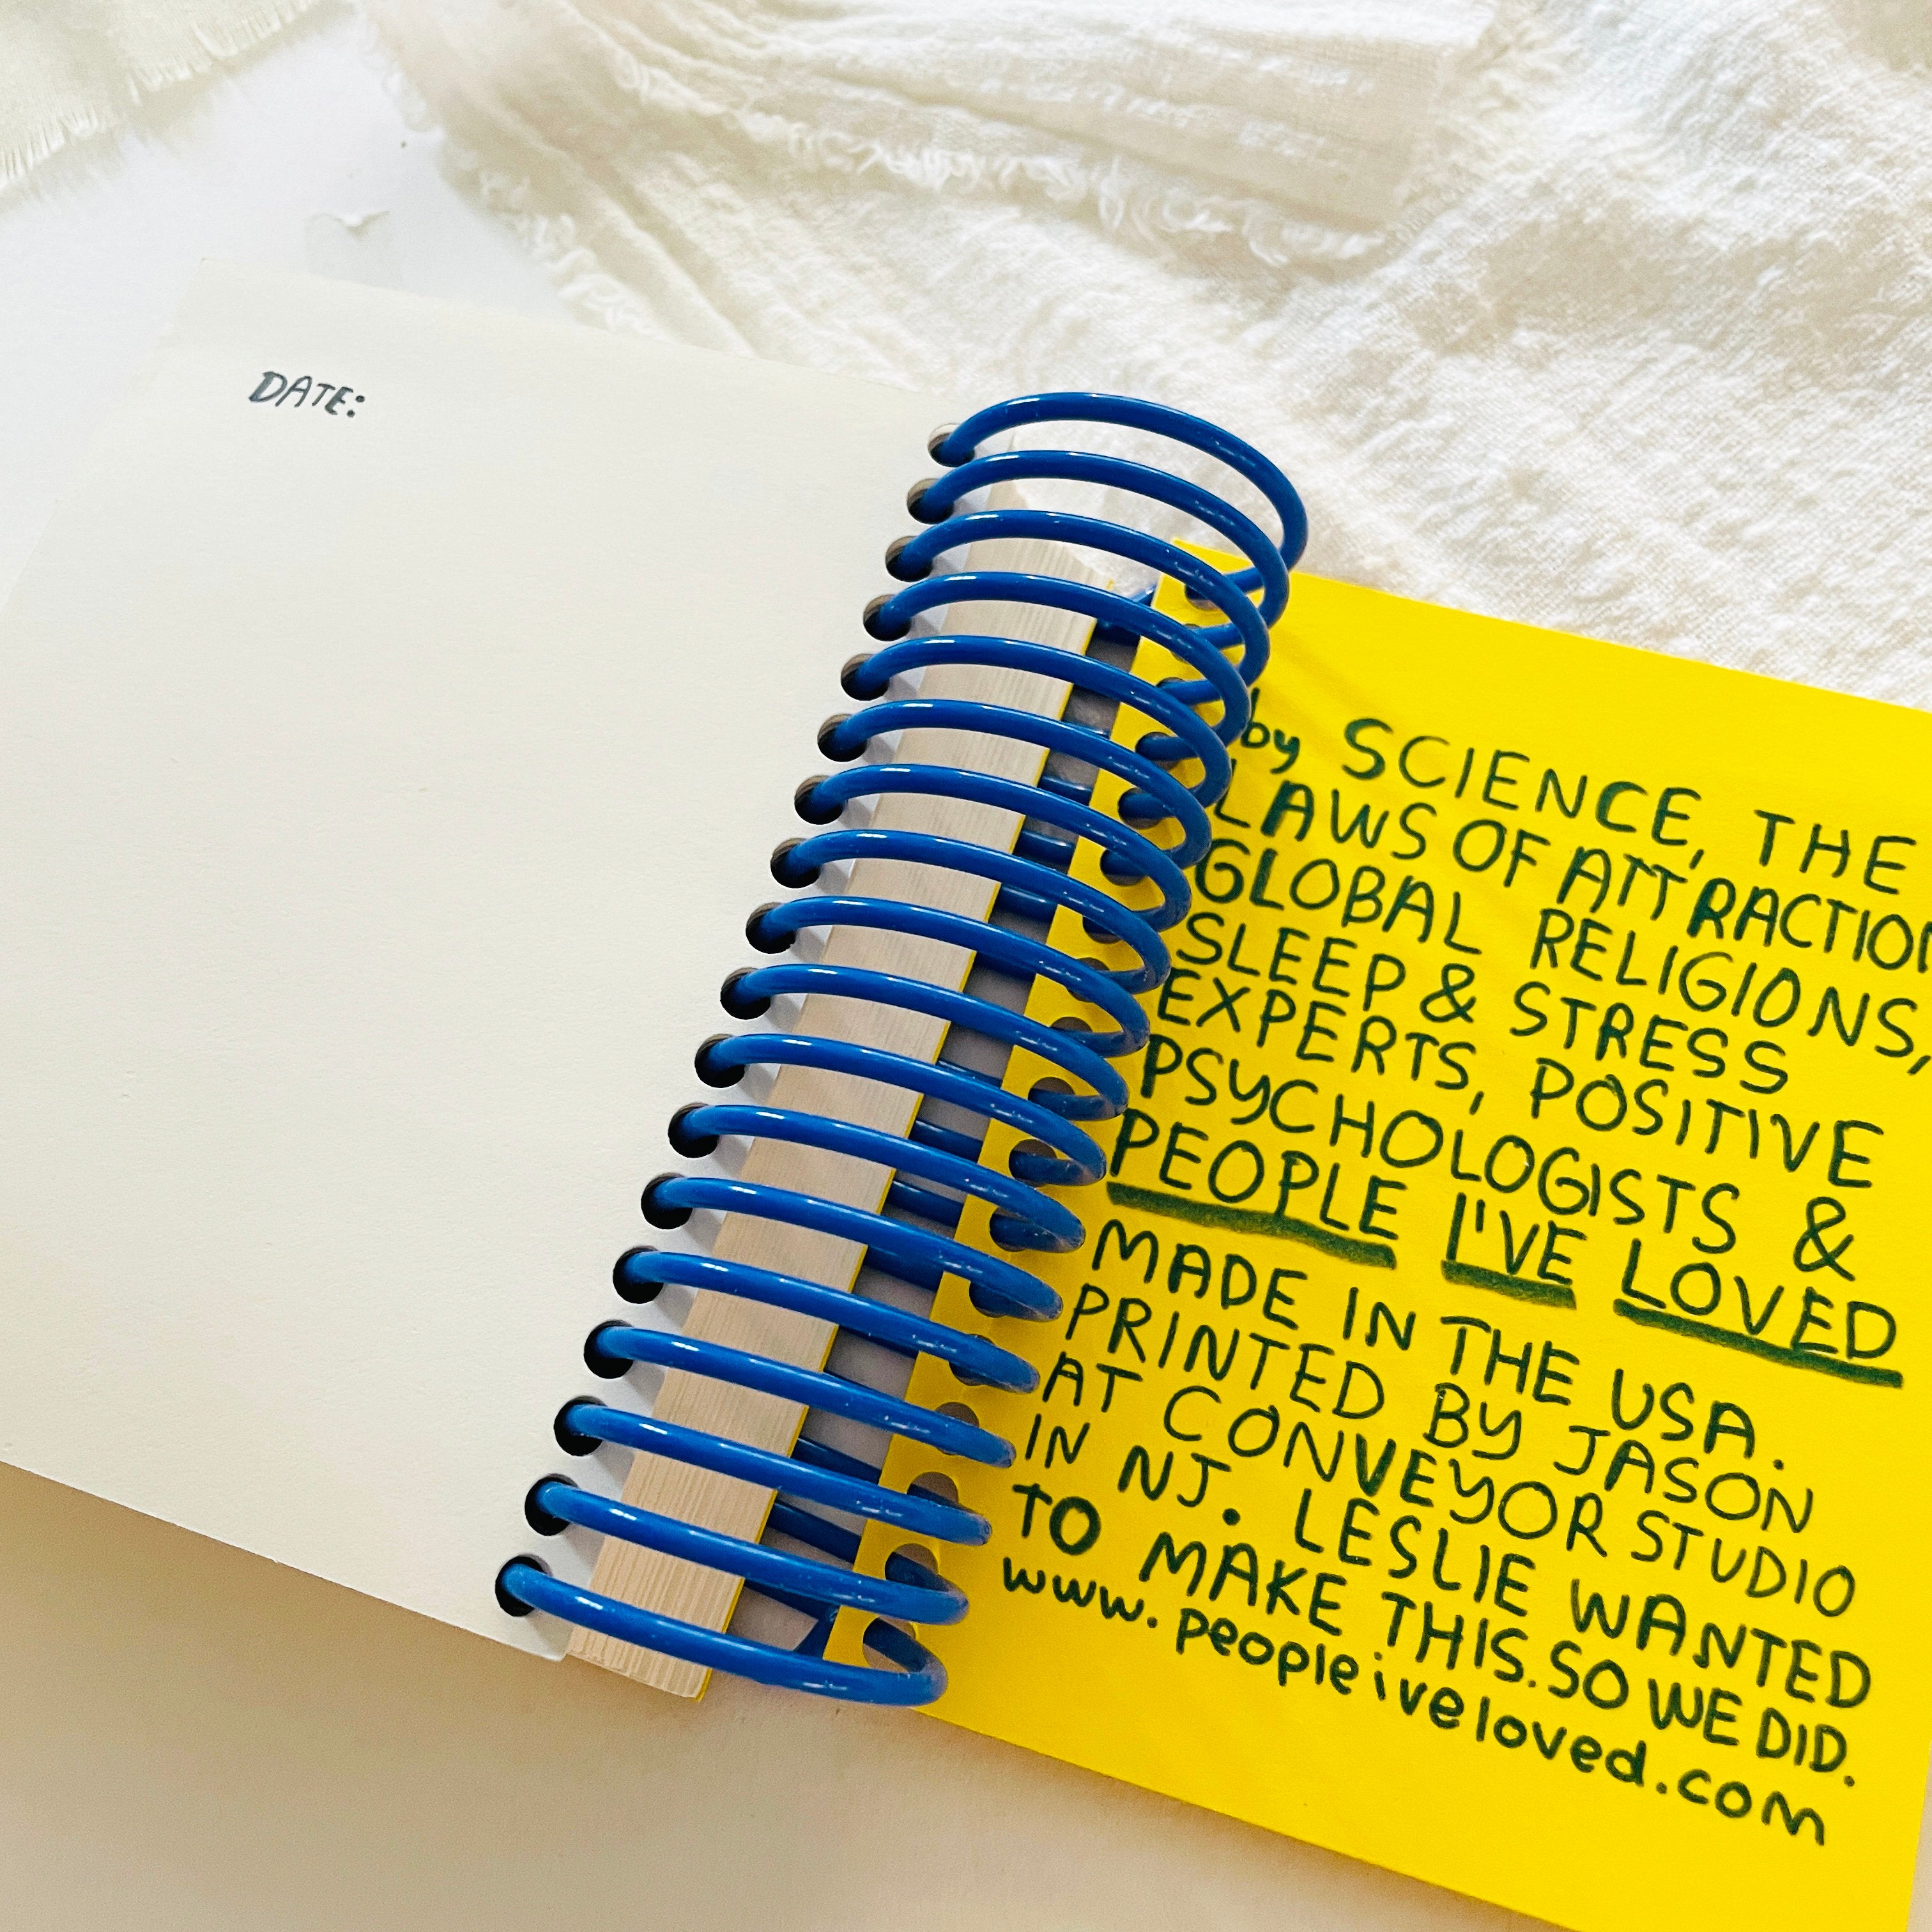 DATE:
by SCIENCE, THE
LAWS OF ATTRACTION,
GLOBAL RELIGIONS,
SLEEP & STRESS
EXPERTS, POSITIVE
PSYCHOLOGISTS &
PEOPLE I'VE LOVED
MADE IN THE USA.
PRINTED BY JASON
AT CONVEYOR STUDIO
IN NJ. LESLIE WANTED
TO MAKE THIS. SO WE DID.
www.peopleiveloved.com